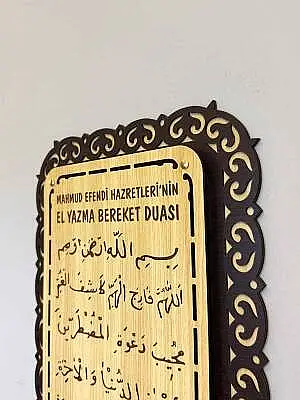 MAHMUD EFENDİ HAZRETLERİ'NİN
EL YAZMA BEREKET DUASI
بسم الله الرحمن الرحيم
اللهم فارج الهم كاشف الغم
مجيب دعوة المضطرين
الدنيا والآخرة